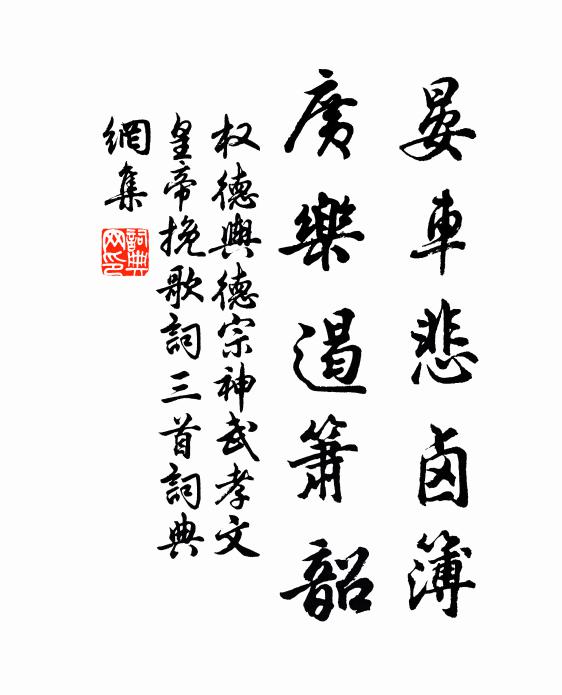 晏車悲卤簿
廣樂遏箫韶
权德輿德宗神武孝文
皇帝挽歌詞三首詞典
網集
詞典網印